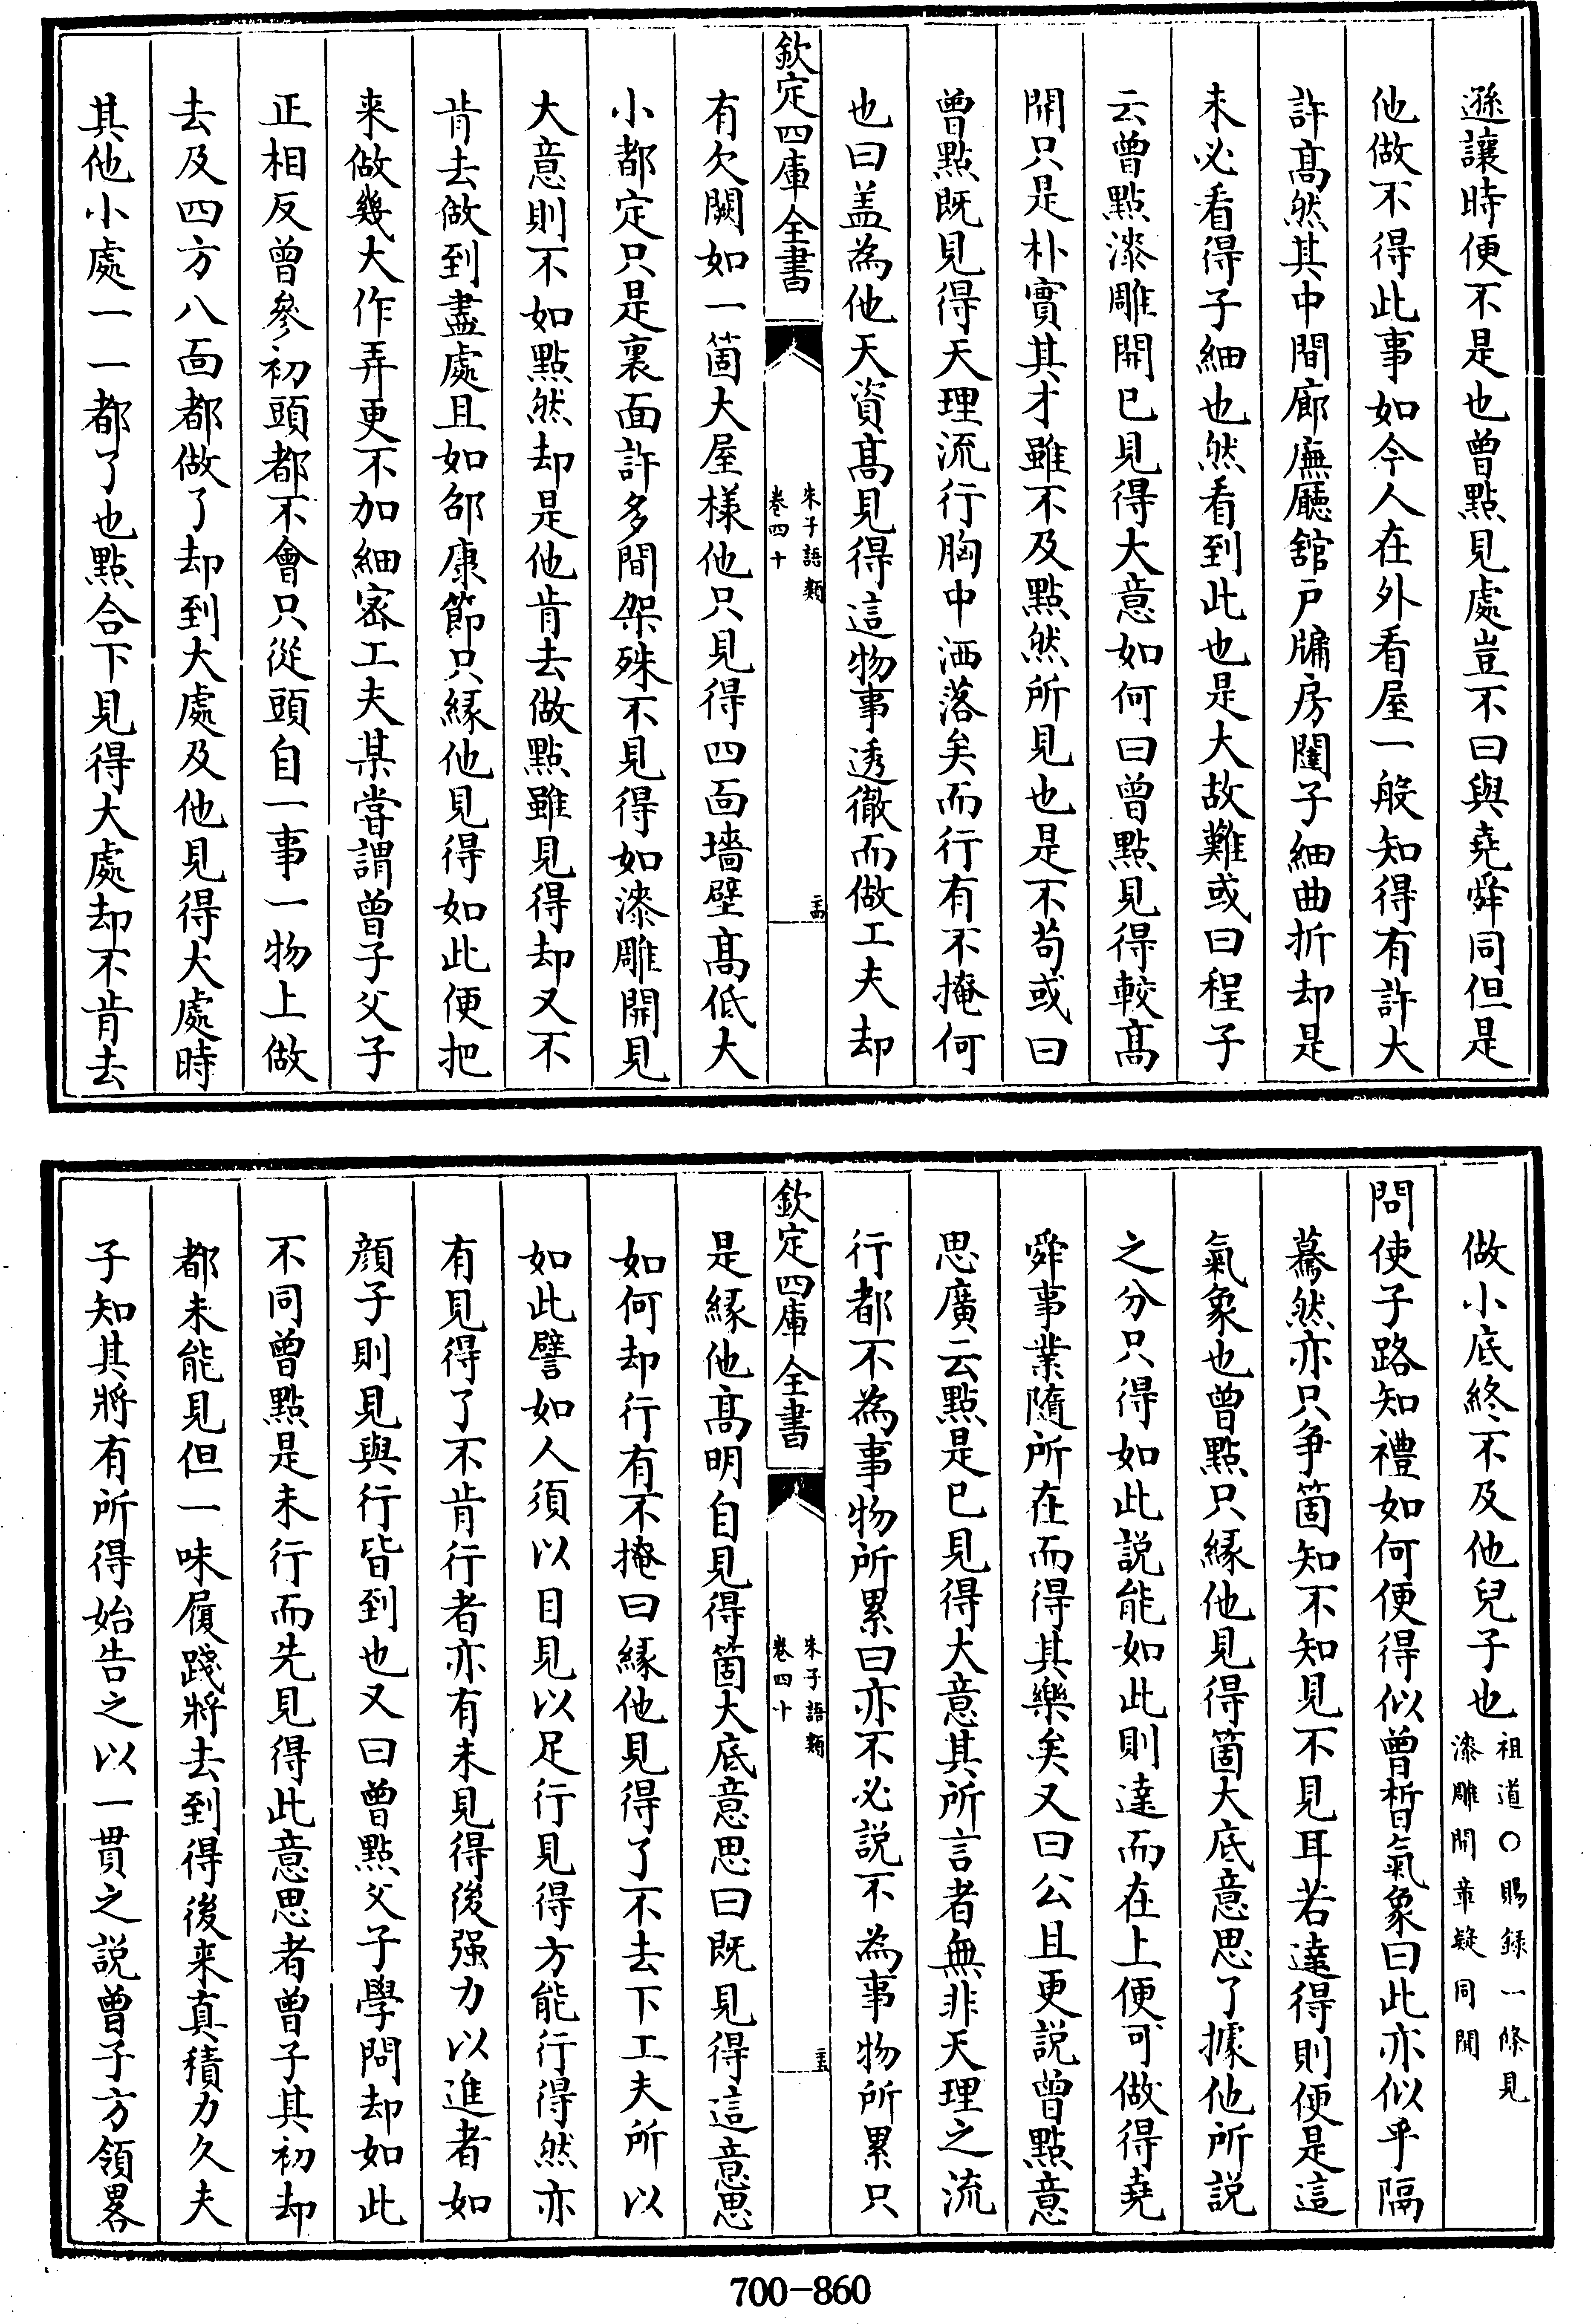 遜讓時便不是也曾點見處豈不曰與堯舜同但是
他做不得此事如今人在外看屋一般知得有許大
許髙然其中間廊廡㕔舘户牖房闥子細曲折却是
未必看得子細也然看到此也是大故難或曰程子
云曾點漆雕開已見得大意如何曰曾點見得較髙
開只是朴實其才雖不及點然所見也是不茍或曰
曾點既見得天理流行胸中洒落矣而行有不掩何
也曰盖為他天資髙見得這物事透徹而做工夫却
欽定四庫全書
朱子語類
卷四十
有欠闕如一箇大屋様他只見得四面墻壁髙低大
小都定只是裏面許多間架殊不見得如漆雕開見
大意則不如點然却是他肯去做點雖見得却又不
肯去做到盡處且如邵康節只緣他見得如此便把
来做幾大作弄更不加細宻工夫某嘗謂曾子父子
正相反曾參初頭都不會只從頭自一事一物上做
去及四方八面都做了却到大處及他見得大處時
其他小處一一都了也點合下見得大處却不肯去
做小底終不及他兒子也
祖道〇賜録一條見
漆雕開章疑同聞
問使子路知禮如何便得似曾晳氣象曰此亦似乎隔
驀然亦只争箇知不知見不見耳若達得則便是這
氣象也曾點只緣他見得箇大底意思了據他所説
之分只得如此説能如此則達而在上便可做得堯
舜事業隨所在而得其樂矣又曰公且更説曾點意
思廣云點是已見得大意其所言者無非天理之流
行都不為事物所累曰亦不必説不為事物所累只
欽定四庫全書
朱子語類
卷四十
是緣他髙明自見得箇大底意思曰既見得這意思
如何却行有不掩曰緣他見得了不去下工夫所以
如此譬如人須以目見以足行見得方能行得然亦
有見得了不肯行者亦有未見得後强力以進者如
顔子則見與行皆到也又曰曾點父子學問却如此
不同曾點是未行而先見得此意思者曾子其初却
都未能見但一味履踐將去到得後来真積力久夫
子知其將有所得始告之以一貫之説曾子方領畧
700-860